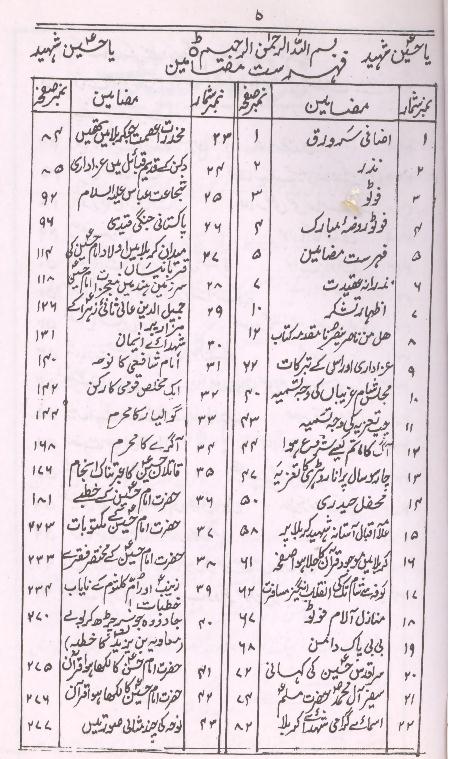 ۵
یا حسینؑ شہید بسم اللہ الرحمٰن الرحیم یا حسینؑ شہید
فہرست مضامین
نمبر شمار مضامین نمبر صفحہ
۱ اضافی سرورق ۱
۲ نذر ۲
۳ فوٹو ۳
۴ فوٹو روضۂ مبارک ۴
۵ فہرست مضامین ۵
۶ نذرانہ عقیدت ۷
۷ اظہار تشکر ۱۰
۸ ھل من ناصر ینصرنا مقدمہ کتاب ۱۲
۹ عزاداری اور اس کے تبرکات ۲۲
۱۰ مجالس شام غریباں کی وجہ تسمیہ ۴۰
۱۱ بوہ تعزیہ کی وجہ تسمیہ ۴۳
۱۲ آگ کا ماتم کیسے شروع ہوا ۴۴
۱۳ چار سو سال پرانا روہڑی کا تعزیہ ۴۷
۱۴ محفل حیدری ۵۰
۱۵ علامہ اقبال آستانہ شہید کربلا پر ۵۸
۱۶ کربلا میں موجود قرآن کا جلا ہوا صفحہ ۶۱
۱۷ کوفہ سے شام تک کی انقلاب انگیز مسافرت ۶۲
۱۸ منازل آلام فوٹو ۶۷
۱۹ بی بی پاک دامن ۶۸
۲۰ سر اقدس حسینؑ کی کہانی ۷۲
۲۱ سفیر آل محمدؐ حضرت مسلمؑ ۷۴
۲۲ اسمائے گرامی شہدائے کربلا ۸۲
نمبر شمار مضامین نمبر صفحہ
۲۳ مخدرات عصمت جو کربلا میں تھیں ۸۴
۲۴ دکن کے قدیم قبائل میں عزاداری ۸۵
۲۵ شجاعت عباس علیہ السلام ۹۲
۲۶ پاکستانی جنگی قیدی ۹۶
۲۷ میدان کربلا میں اولاد امام حسینؑ کی قربانیاں ۱۱۴
۲۸ سرزمین ہند میں معجزات امام حسینؑ ۱۱۸
۲۹ جمیل الدین عالی ثانی زہراؑ کے مزار پر ۱۲۶
۳۰ شہدائے ایمان ۱۳۱
۳۱ امام شافعی کا نوحہ ۱۴۰
۳۲ ایک مخلص قومی کارکن ۱۴۲
۳۳ گوالیار کا محرم ۱۴۴
۳۴ آگرے کا محرم ۱۶۸
۳۵ قاتلان حسینؑ کا عبرتناک انجام ۱۷۶
۳۶ حضرت امام حسینؑ کے خطبے ۱۸۱
۳۷ حضرت امام حسینؑ کے مکتوبات ۲۲۳
۳۸ حضرت امام حسینؑ کے مختصر فقرے ۲۳۳
۳۹ زینبؑ اور ام کلثومؑ کے نایاب خطبات ۲۳۴
۴۰ جادو وہ جو سر چڑھ کر بولے ۲۷۰
(معاویہ بن یزید کا خطبہ)
۴۱ حضرت امام حسنؑ کا لکھا ہوا قرآن ۲۷۵
۴۲ حضرت امام حسینؑ کا لکھا ہوا قرآن ۲۷۶
۴۳ نوحہ کی چند مثالی صورتیں ۲۷۷